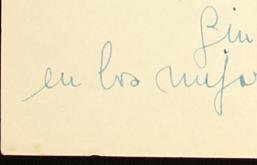 Sin
en los mejor